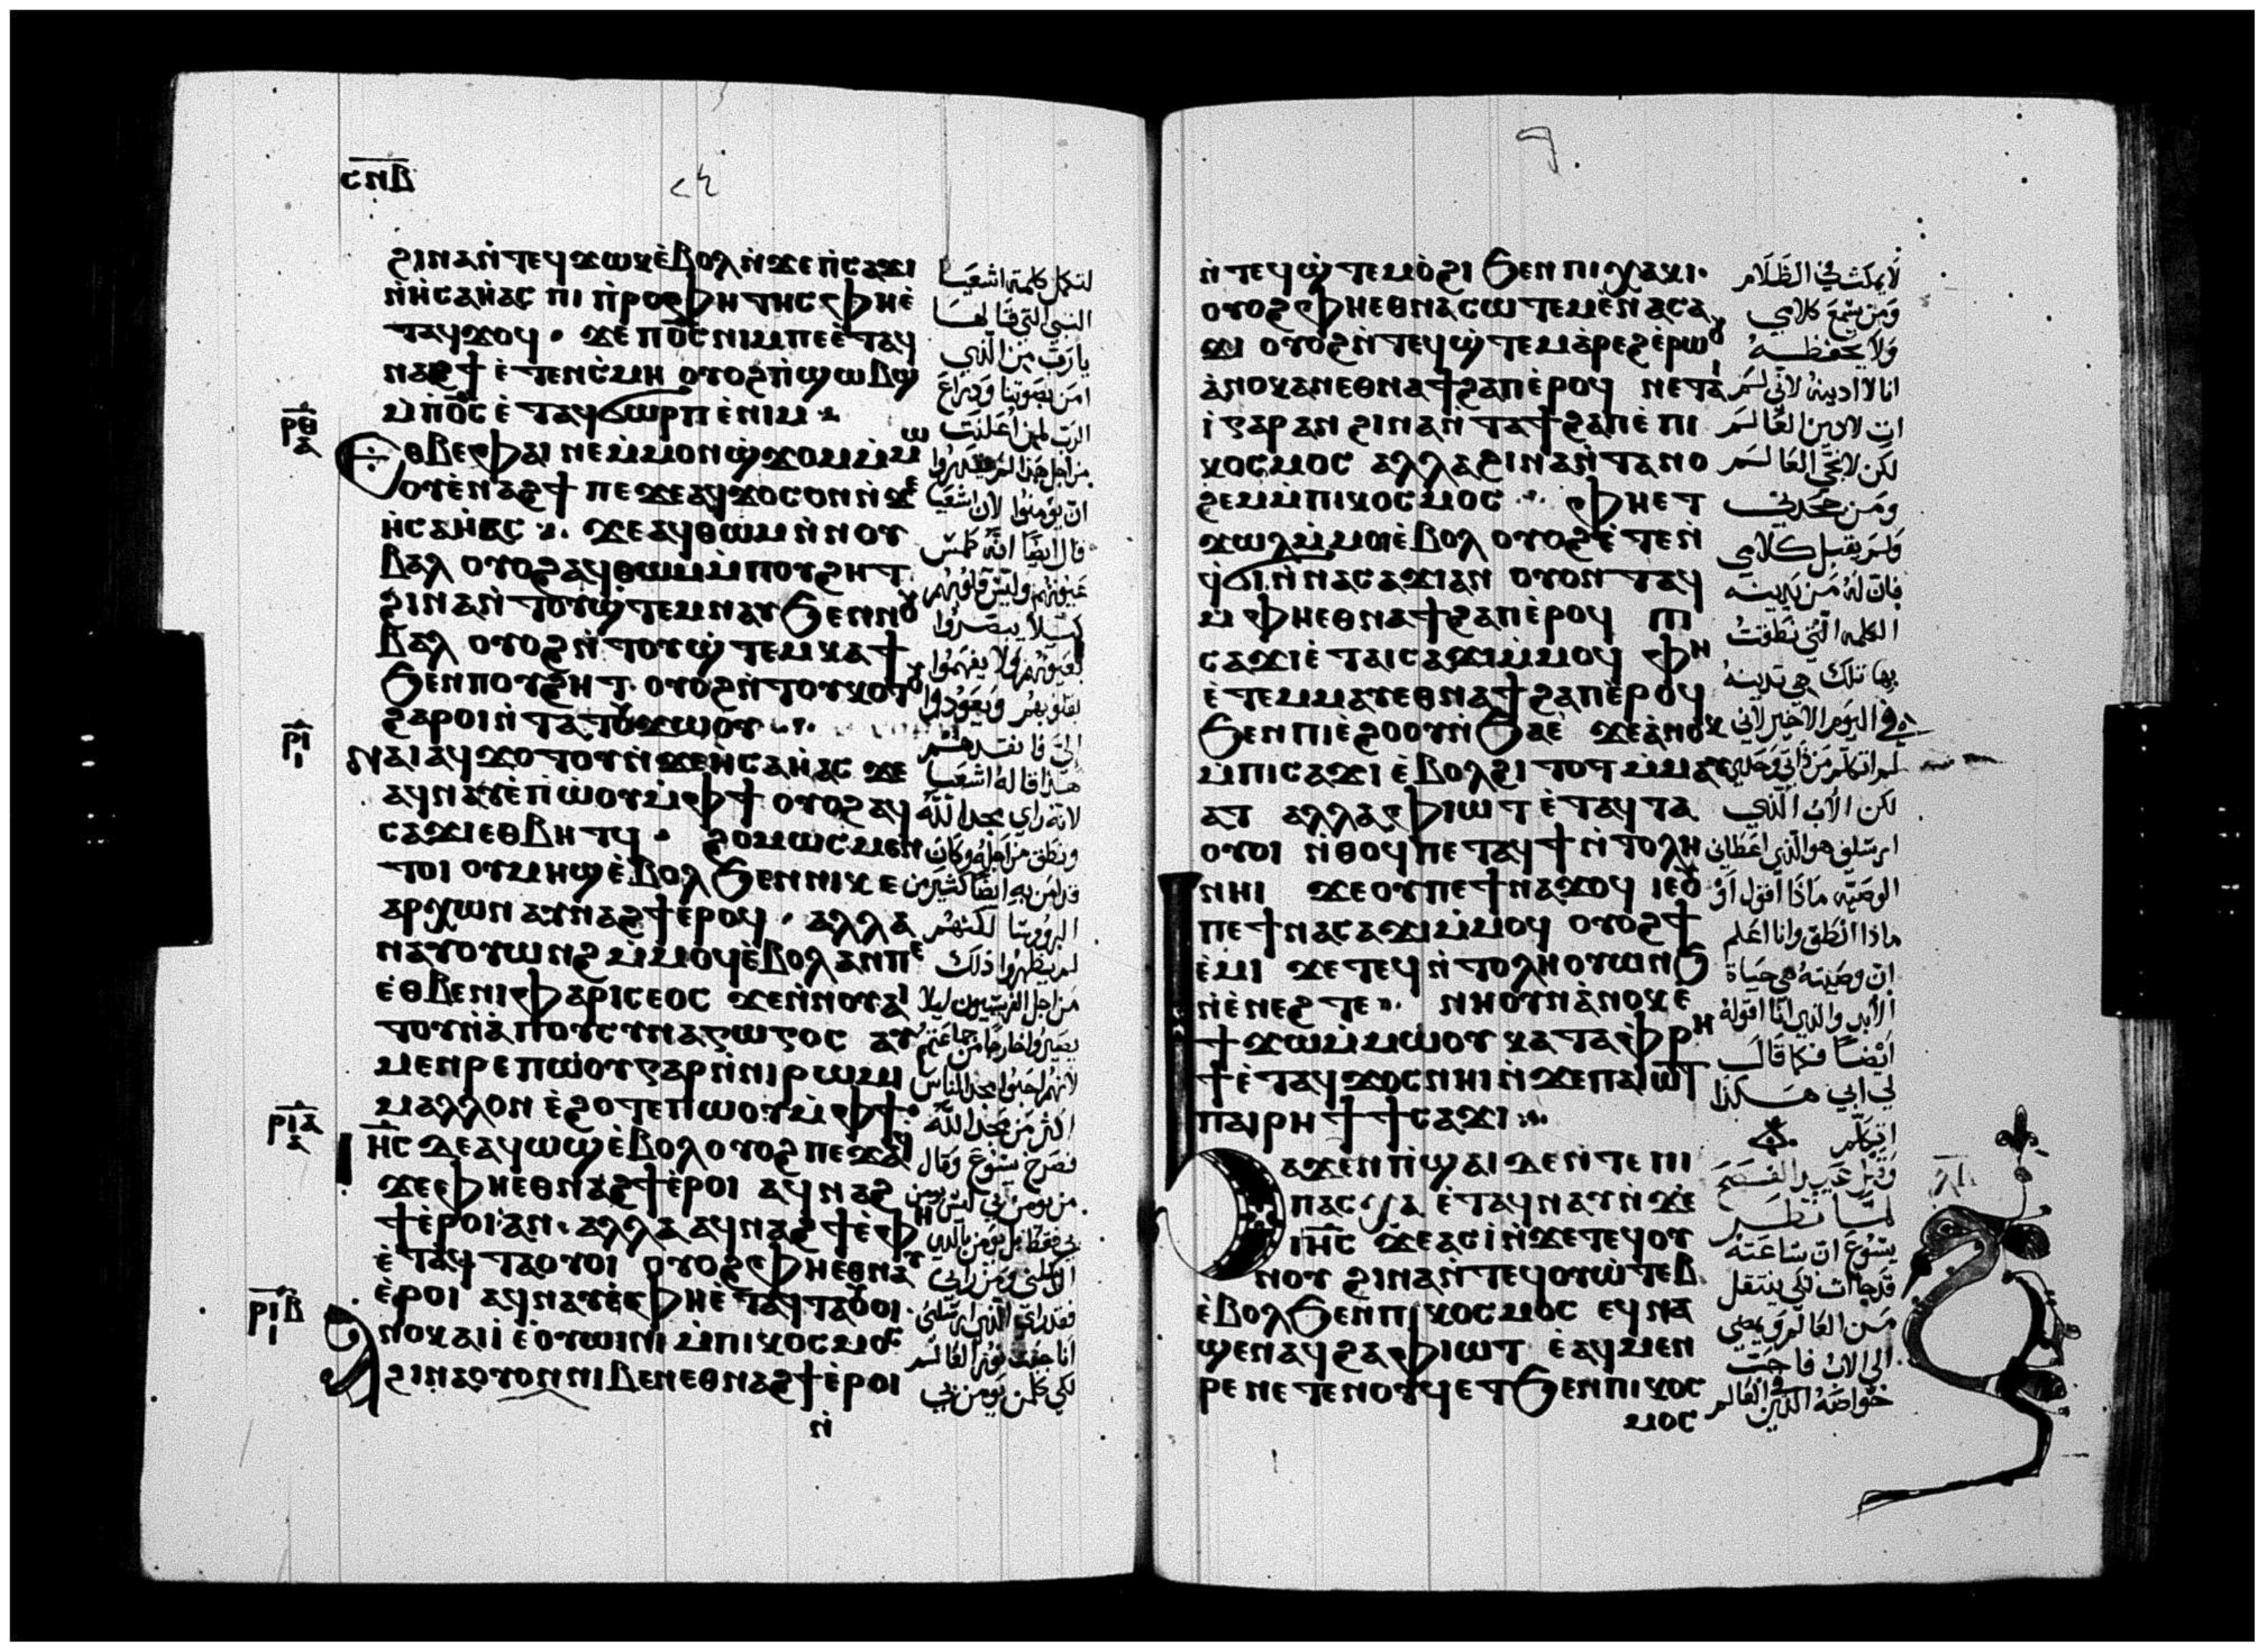 ⲥⲛⲇ
ϩⲓⲛⲁ ⲛ̀ⲧⲉϥϫⲱⲕ ⲉ̀ⲃⲟⲗ ⲛ̀ϫⲉ ⲡ̀ⲥⲁϫⲓ
ⲛ̀ⲏ̀ⲥⲁⲏ̀ⲁⲥ ⲡⲓ ⲡ̀ⲣⲟⲫⲏⲧⲏⲥ ⲫⲏⲉ̀
ⲧⲁϥϫⲟϥ · ϫⲉ ⲡⲟ̅ⲥ̅ ⲛⲓⲙ ⲡⲉ ⲉ̀ⲧⲁϥ
ⲛⲁϩϯ ⲉ̀ⲧⲉⲛⲥ̀ⲙⲏ ⲟⲩⲟϩ ⲡ̀ϣⲱⲃϣ
ⲙ̀ⲡⲟ̅ⲥ̅ ⲉ̀ⲧⲁϥϭⲱⲣⲡ ⲉ̀ⲛⲓⲙ
ⲣⲑ
ⲁ
Ⲉⲑⲃⲉ ⲫⲁⲓ ⲛⲉ ⲙ̀ⲙⲟⲛ ϣ̀ϫⲟⲙ ⲙ̀ⲙⲱ
ⲟⲩ ⲉ̀ⲛⲁϩϯ ⲡⲉ ϫⲉ ⲁϥϫⲟⲥ ⲟⲛ ⲛ̀ϫⲉ
ⲏ̀ⲥⲁⲏ̀ⲁⲥ ϫⲉ ⲁϥⲑⲱⲙ ⲛ̀ⲛⲟⲩ
ⲃⲁⲗ ⲟⲩⲟϩ ⲁϥⲑⲱⲙ ⲙ̀ⲡⲟⲩϩⲏⲧ
ϩⲓⲛⲁ ⲛ̀ⲧⲟⲩϣ̀ⲧⲉⲙⲛⲁⲩ ϧⲉⲛ ⲛⲟⲩ
ⲃⲁⲗ ⲟⲩⲟϩ ⲛ̀ⲧⲟⲩϣ̀ⲧⲉⲙⲕⲁϯ
ϧⲉⲛ ⲡⲟⲩϩⲏⲧ ⲟⲩⲟϩ ⲛ̀ⲧⲟⲩⲕⲟⲧⲟⲩ
ϩⲁⲣⲟⲓ ⲛ̀ⲧⲁⲧⲟⲩϫⲱⲟⲩ
ⲣⲓ
ⲓ
Ⲛⲁⲓ ⲁϥϫⲟⲧⲟⲩ ⲛ̀ϫⲉ ⲏ̀ⲥⲁⲏ̀ⲁⲥ ϫⲉ
ⲁϥⲛⲁⲩ ⲉ̀ⲡ̀ⲱ̀ⲟⲩ ⲙ̀ⲫϯ ⲟⲩⲟϩ ⲁϥ
ⲥⲁϫⲓ ⲉⲑⲃⲏⲧϥ · ϩⲟⲙⲱⲥ ⲙⲉⲛ
ⲧⲟⲓ ⲟⲩⲙⲏϣ ⲉ̀ⲃⲟⲗ ϧⲉⲛ ⲛⲓⲕⲉ
ⲁⲣⲭⲱⲛ ⲁⲩⲛⲁϩϯ ⲉ̀ⲣⲟϥ · ⲁⲗⲗⲁ
ⲛⲁⲩⲟⲩⲱⲛϩ ⲙ̀ⲙⲟϥ ⲉ̀ⲃⲟⲗ ⲁⲛ ⲡⲉ
ⲉ̀ⲑⲃⲉ ⲛⲓⲫⲁⲣⲓⲥⲉⲟⲥ ϫⲉ ⲛ̀ⲛⲟⲩⲁⲓ
ⲧⲟⲩ ⲛ̀ⲁ̀ⲡⲟⲥⲩⲛⲁⲅⲱⲅⲟⲥ ⲁⲩ
ⲙⲉⲛⲣⲉ ⲡⲱ̀ⲟⲩ ⲅⲁⲣ ⲛ̀ⲛⲓⲣⲱⲙⲓ
ⲙⲁⲗⲗⲟⲛ ⲉ̀ϩⲟⲧⲉ ⲡⲱⲟⲩ ⲙ̀ⲫϯ
ⲣⲓⲁ
ⲁ
Ⲓⲏ̅ⲥ̅ ⲇⲉ ⲁϥⲱϣ ⲉ̀ⲃⲟⲗ ⲟⲩⲟϩ ⲡⲉϫⲁϥ
ϫⲉ ⲫⲏⲉⲑⲛⲁϩϯ ⲉ̀ⲣⲟⲓ ⲁϥⲛⲁϩ
ϯ ⲉ̀ⲣⲟⲓ ⲁⲛ · ⲁⲗⲗⲁ ⲁϥⲛⲁϩϯ ⲉ̀ⲫⲏ
ⲉ̀ⲧⲁϥⲧⲁⲟⲩⲟⲓ ⲟⲩⲟϩ ⲫⲏⲉⲑⲛⲁⲩ
ⲉ̀ⲣⲟⲓ ⲁϥⲛⲁⲩ ⲉ̀ⲫⲏⲉ̀ⲧⲁϥⲧⲁⲟⲩⲟⲓ
ⲣⲓⲃ
ⲓ
Ⲁⲛⲟⲕ ⲁⲓⲓ̀ ⲉ̀ⲟⲩⲱⲓⲛⲓ ⲙ̀ⲡⲓⲕⲟⲥⲙⲟⲥ
ϩⲓⲛⲁ ⲟⲩⲟⲛ ⲛⲓⲃⲉⲛ ⲉⲑⲛⲁϩϯ ⲉ̀ⲣⲟⲓ
ⲛ̀
لتكمل كلمة اشعيا
النبي التي قالها
يا رب من الذي
امن بصوتنا وذراع
الرب لمن اعلنت
من اجل هذا لم يقدروا
ان يومنوا لان اشعيا
قال ايضا انه طمس
عيونهم وليس قلوبهم
كيلا يبصروا
بعيونهم ولا يفهموا
بقلوبهم ويعودوا
الي فانقذهم
هذا قاله اشعيا
لانه راي مجد الله
ونطق من اجله وكان
قد امن به ايضا كثير من
الروسا لكنهم
لم يظهروا ذلك
من اجل الفريسيين ليلا
يصيروا خارجا من جماعتهم
لانهم احبوا مجد الناس
اكثر من مجد الله
فصرخ يسوع وقال
من يومن بي ليس يومن
بي فقط بل يومن بالذي
ارسلني ومن راني
فقد راي الذي ارسلني
انا جيت نور العالم
لكي كل من يومن بي
ⲛ̀ⲧⲉϥϣ̀ⲧⲉⲙⲟ̀ϩⲓ ϧⲉⲛ ⲡⲓⲭⲁⲕⲓ·
ⲟⲩⲟϩ ⲫⲏⲉⲑⲛⲁⲥⲱⲧⲉⲙ ⲉ̀ⲛⲁⲥⲁ
ϫⲓ ⲟⲩⲟϩ ⲛ̀ⲧⲉϥϣ̀ⲧⲉⲙⲁ̀ⲣⲉϩ ⲉ̀ⲣⲱⲟⲩ
ⲁ̀ⲛⲟⲕ ⲁⲛ ⲉⲑⲛⲁϯϩⲁⲡ ⲉ̀ⲣⲟϥ ⲛⲉⲧⲁⲓ
ⲓ̀ ⲅⲁⲣ ⲁⲛ ϩⲓⲛⲁ ⲛ̀ⲧⲁϯϩⲁⲡ ⲉ̀ⲡⲓ
ⲕⲟⲥⲙⲟⲥ ⲁⲗⲗⲁ ϩⲓⲛⲁ ⲛ̀ⲧⲁⲛⲟ
ϩⲉⲙ ⲙ̀ⲡⲓⲕⲟⲥⲙⲟⲥ ⲫⲏⲉⲧ
ϫⲱⲗ ⲙ̀ⲙⲟⲓ ⲉ̀ⲃⲟⲗ ⲟⲩⲟϩ ⲉ̀ⲧⲉⲛ
ϥ̀ϭⲓ ⲛ̀ⲛⲁⲥⲁϫⲓ ⲁⲛ ⲟⲩⲟⲛⲧⲁϥ
ⲙ̀ⲫⲏⲉⲑⲛⲁϯϩⲁⲡ ⲉ̀ⲣⲟϥ ⲡⲓ
ⲥⲁϫⲓ ⲉ̀ⲧⲁⲓⲥⲁϫⲓ ⲙ̀ⲙⲟϥ ⲫⲏ
ⲉ̀ⲧⲉⲙⲙⲁⲩ ⲉⲑⲛⲁϯϩⲁⲡ ⲉ̀ⲣⲟϥ
ϧⲉⲛ ⲡⲓⲉ̀ϩⲟⲟⲩ ⲛ̀ϧⲁⲉ̀ ϫⲉ ⲁ̀ⲛⲟⲕ
ⲙ̀ⲡⲓⲥⲁϫⲓ ⲉ̀ⲃⲟⲗ ϩⲓⲧⲟⲧ ⲙ̀ⲙⲁⲩ
ⲁⲧ ⲁⲗⲗⲁ ⲫⲓⲱⲧ ⲉ̀ⲧⲁϥⲧⲁ
ⲟⲩⲟⲓ ⲛ̀ⲑⲟϥ ⲡⲉⲧⲁϥϯ ⲛ̀ⲧⲟⲗⲏ
ⲛⲏⲓ ϫⲉ ⲟⲩ ⲡⲉϯⲛⲁϫⲟϥ ⲓⲉ ⲟⲩ
ⲡⲉϯⲛⲁⲥⲁϫⲓ ⲙ̀ⲙⲟϥ ⲟⲩⲟϩ ϯ
ⲉ̀ⲙⲓ ϫⲉ ⲧⲉϥⲛ̀ⲧⲟⲗⲏ ⲟⲩⲱⲛϧ
ⲛ̀ⲉ̀ⲛⲉϩ ⲧⲉ ⲛⲏⲟⲩⲛ ⲁ̀ⲛⲟⲕ ⲉ̀
ϯϫⲱ ⲙ̀ⲙⲱ̀ⲟⲩ ⲕⲁⲧⲁ ⲫ̀ⲣⲏ
ϯ ⲉ̀ⲧⲁϥϫⲟⲥ ⲛⲏⲓ ⲛ̀ϫⲉ ⲡⲁⲓⲱⲧ
ⲡⲁⲓⲣⲏϯ ϯⲥⲁϫⲓ
Ϧⲁϫⲉⲛ ⲡ̀ϣⲁⲓ ⲇⲉ ⲛ̀ⲧⲉ ⲡⲓ
ⲡⲁⲥⲭⲁ ⲉ̀ⲧⲁϥⲛⲁⲩ ⲛ̀ϫⲉ
ⲓⲏ̅ⲥ̅ ϫⲉ ⲁⲥⲓ̀ ⲛ̀ϫⲉ ⲧⲉϥⲟⲩ
ⲛⲟⲩ ϩⲓⲛⲁ ⲛ̀ⲧⲉϥⲟⲩⲱ̀ⲧⲉⲃ
ⲉ̀ⲃⲟⲗ ϧⲉⲛ ⲡⲓⲕⲟⲥⲙⲟⲥ ⲉϥⲛⲁ
ϣⲉⲛⲁϥ ϩⲁ ⲫⲓⲱⲧ ⲉ̀ⲁϥⲙⲉⲛ
ⲣⲉ ⲛⲉⲧⲉⲛⲟⲩϥ ⲉⲧϧⲉⲛ ⲡⲓⲕⲟⲥ
ⲙⲟⲥ
لا يمكث في الظلام
ومن يسمع كلامي
ولا يحفظه
انا لا ادينه لاني لم
ات لادين العالم
لكن لانجي العالم
ومن جحدني
ولم يقبل كلامي
فان له من يدينه
الكلمة التي نطقت
بها تلك هي تدينه
في اليوم الاخير لاني
لم اتكلم من ذاتي وحدي
لكن الاب الذي
ارسلني هو الذي اعطاني
الوصية ماذا اقول او
ماذا انطق وانا اعلم
ان وصيته هي حياة
الابد والذي انا اقوله
ايضا فكما قال
لي ابي هكذا
اتكلم
وقبل عيد الفصح
لما نظر
يسوع ان ساعته
قد جات لكي ينتقل
من العالم ويمضي
الي الاب فاحب
خواصه الذين في العالم